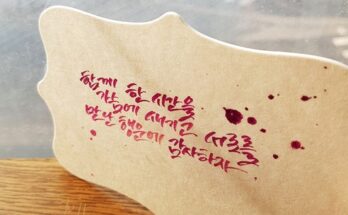 함께 한 시간을
가슴에 새기고 서로를
만난 행운에 감사하자